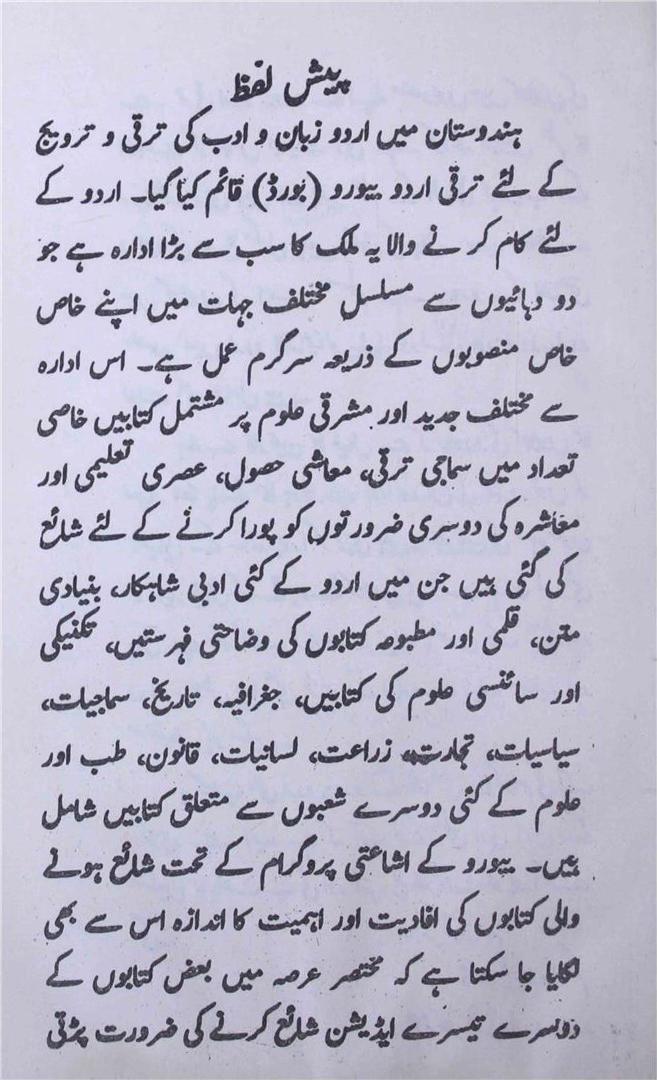 پیش لفظ
ہندوستان میں اردو زبان و ادب کی ترقی و ترویج
کے لئے ترقی اردو بیورو (بورڈ) قائم کیا گیا۔ اردو کے
لئے کام کرنے والا یہ ملک کا سب سے بڑا ادارہ ہے جو
دو دہائیوں سے مسلسل مختلف جہات میں اپنے خاص
خاص منصوبوں کے ذریعہ سرگرم عمل ہے۔ اس ادارہ
سے مختلف جدید اور مشرقی علوم پر مشتمل کتابیں خاصی
تعداد میں سماجی ترقی، معاشی حصول، عصری تعلیمی اور
معاشرہ کی دوسری ضرورتوں کو پورا کرنے کے لئے شائع
کی گئی ہیں جن میں اردو کے کئی ادبی شاہکار، بنیادی
متن، قلمی اور مطبوعہ کتابوں کی وضاحتی فہرستیں، تکنیکی
اور سائنسی علوم کی کتابیں، جغرافیہ، تاریخ، سماجیات،
سیاسیات، تجارت، زراعت، لسانیات، قانون، طب اور
علوم کے کئی دوسرے شعبوں سے متعلق کتابیں شامل
ہیں۔ بیورو کے اشاعتی پروگرام کے تحت شائع ہونے
والی کتابوں کی افادیت اور اہمیت کا اندازہ اس سے بھی
لگایا جا سکتا ہے کہ مختصر عرصہ میں بعض کتابوں کے
دوسرے تیسرے ایڈیشن شائع کرنے کی ضرورت پڑتی